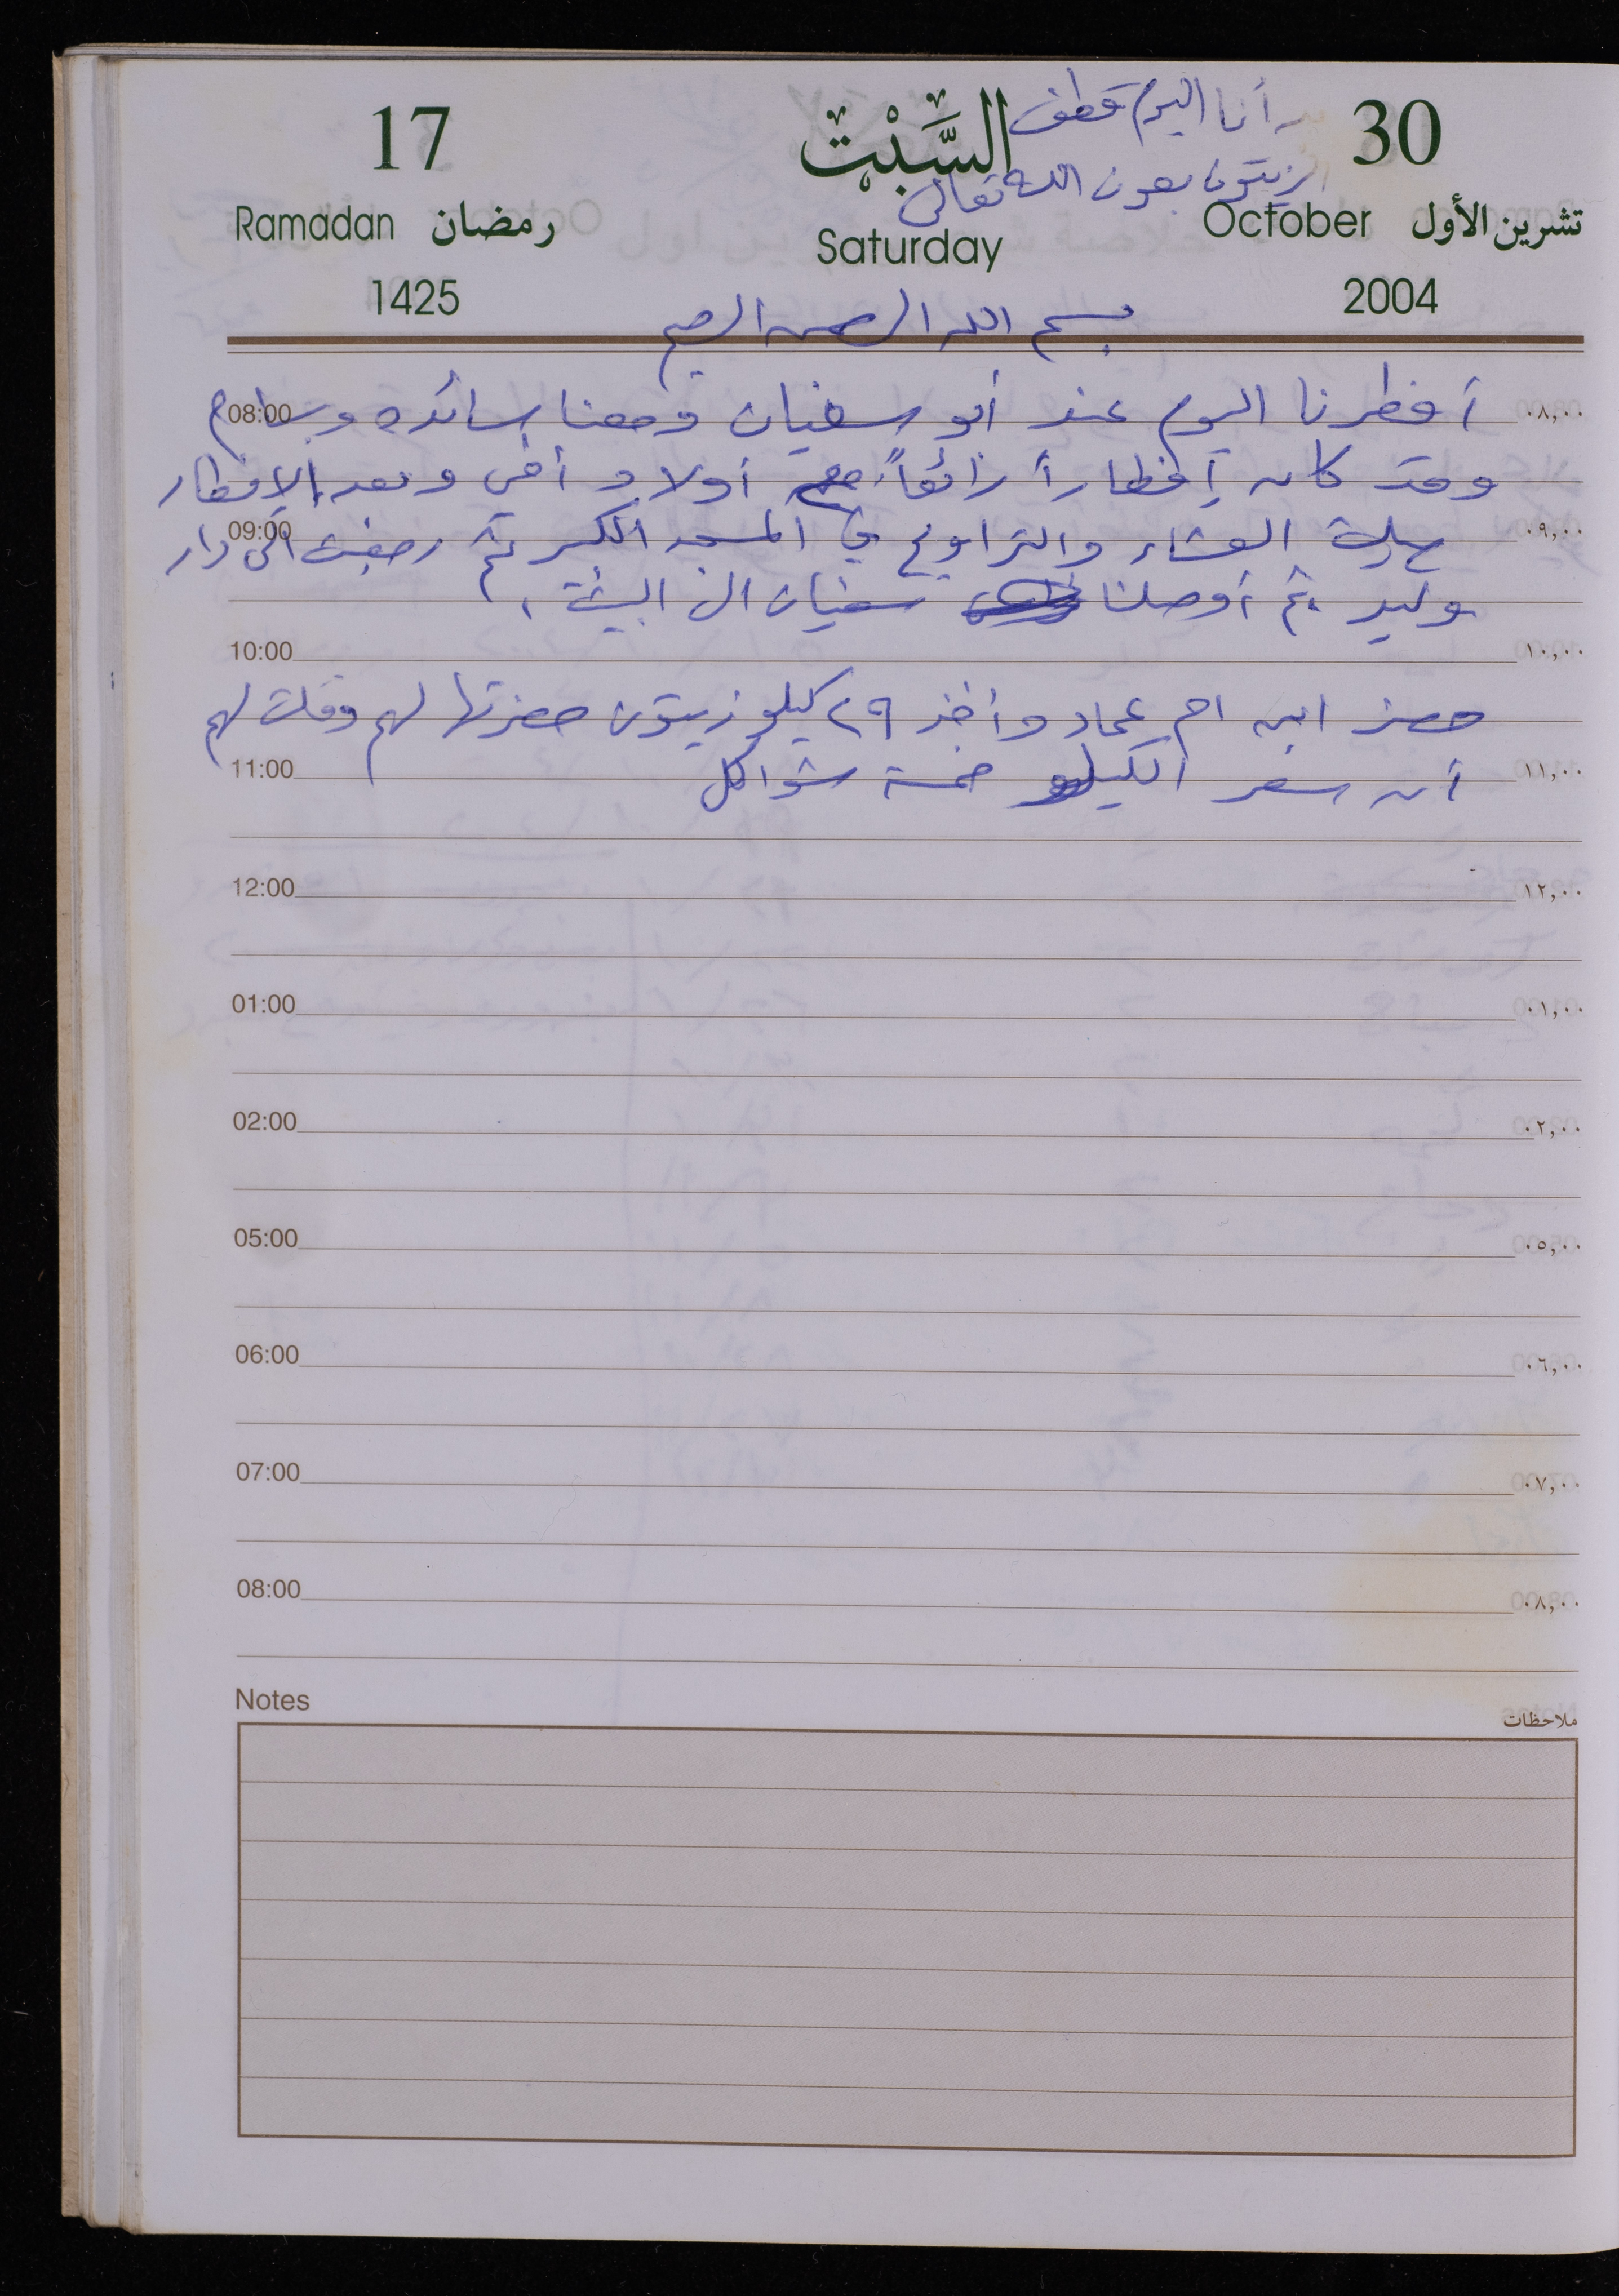 30 السَّبْت 17
بدأنا اليوم قطف
الزيتون بعون الله تعالى
تشرين الأول October Saturday Ramadan رمضان
2004 1425
بسم الله الرحمن الرحيم
أفطرنا اليوم عند أبو سفيان ومعنا سائده وسام
08:00 ٠٨,٠٠
وقد كان إفطاراً رائعاً مع أولاد أخي وبعد الإفطار
صليت العشاء والتراويح في المسجد الكبير ثم رجعت الى دار
09:00 ٠٩,٠٠
وليد ثم أوصلنا سفيان الى البيت.
10:00 ١٠,٠٠
حضر ابن ام عماد وأخذ ٢٩ كيلو زيتون حضرتها لهم وقلت لهم
أن سعر الكيلو خمسة شواكل
11:00 ١١,٠٠
12:00 ١٢,٠٠
01:00 ٠١,٠٠
02:00 ٠٢,٠٠
05:00 ٠٥,٠٠
06:00 ٠٦,٠٠
07:00 ٠٧,٠٠
08:00 ٠٨,٠٠
Notes ملاحظات